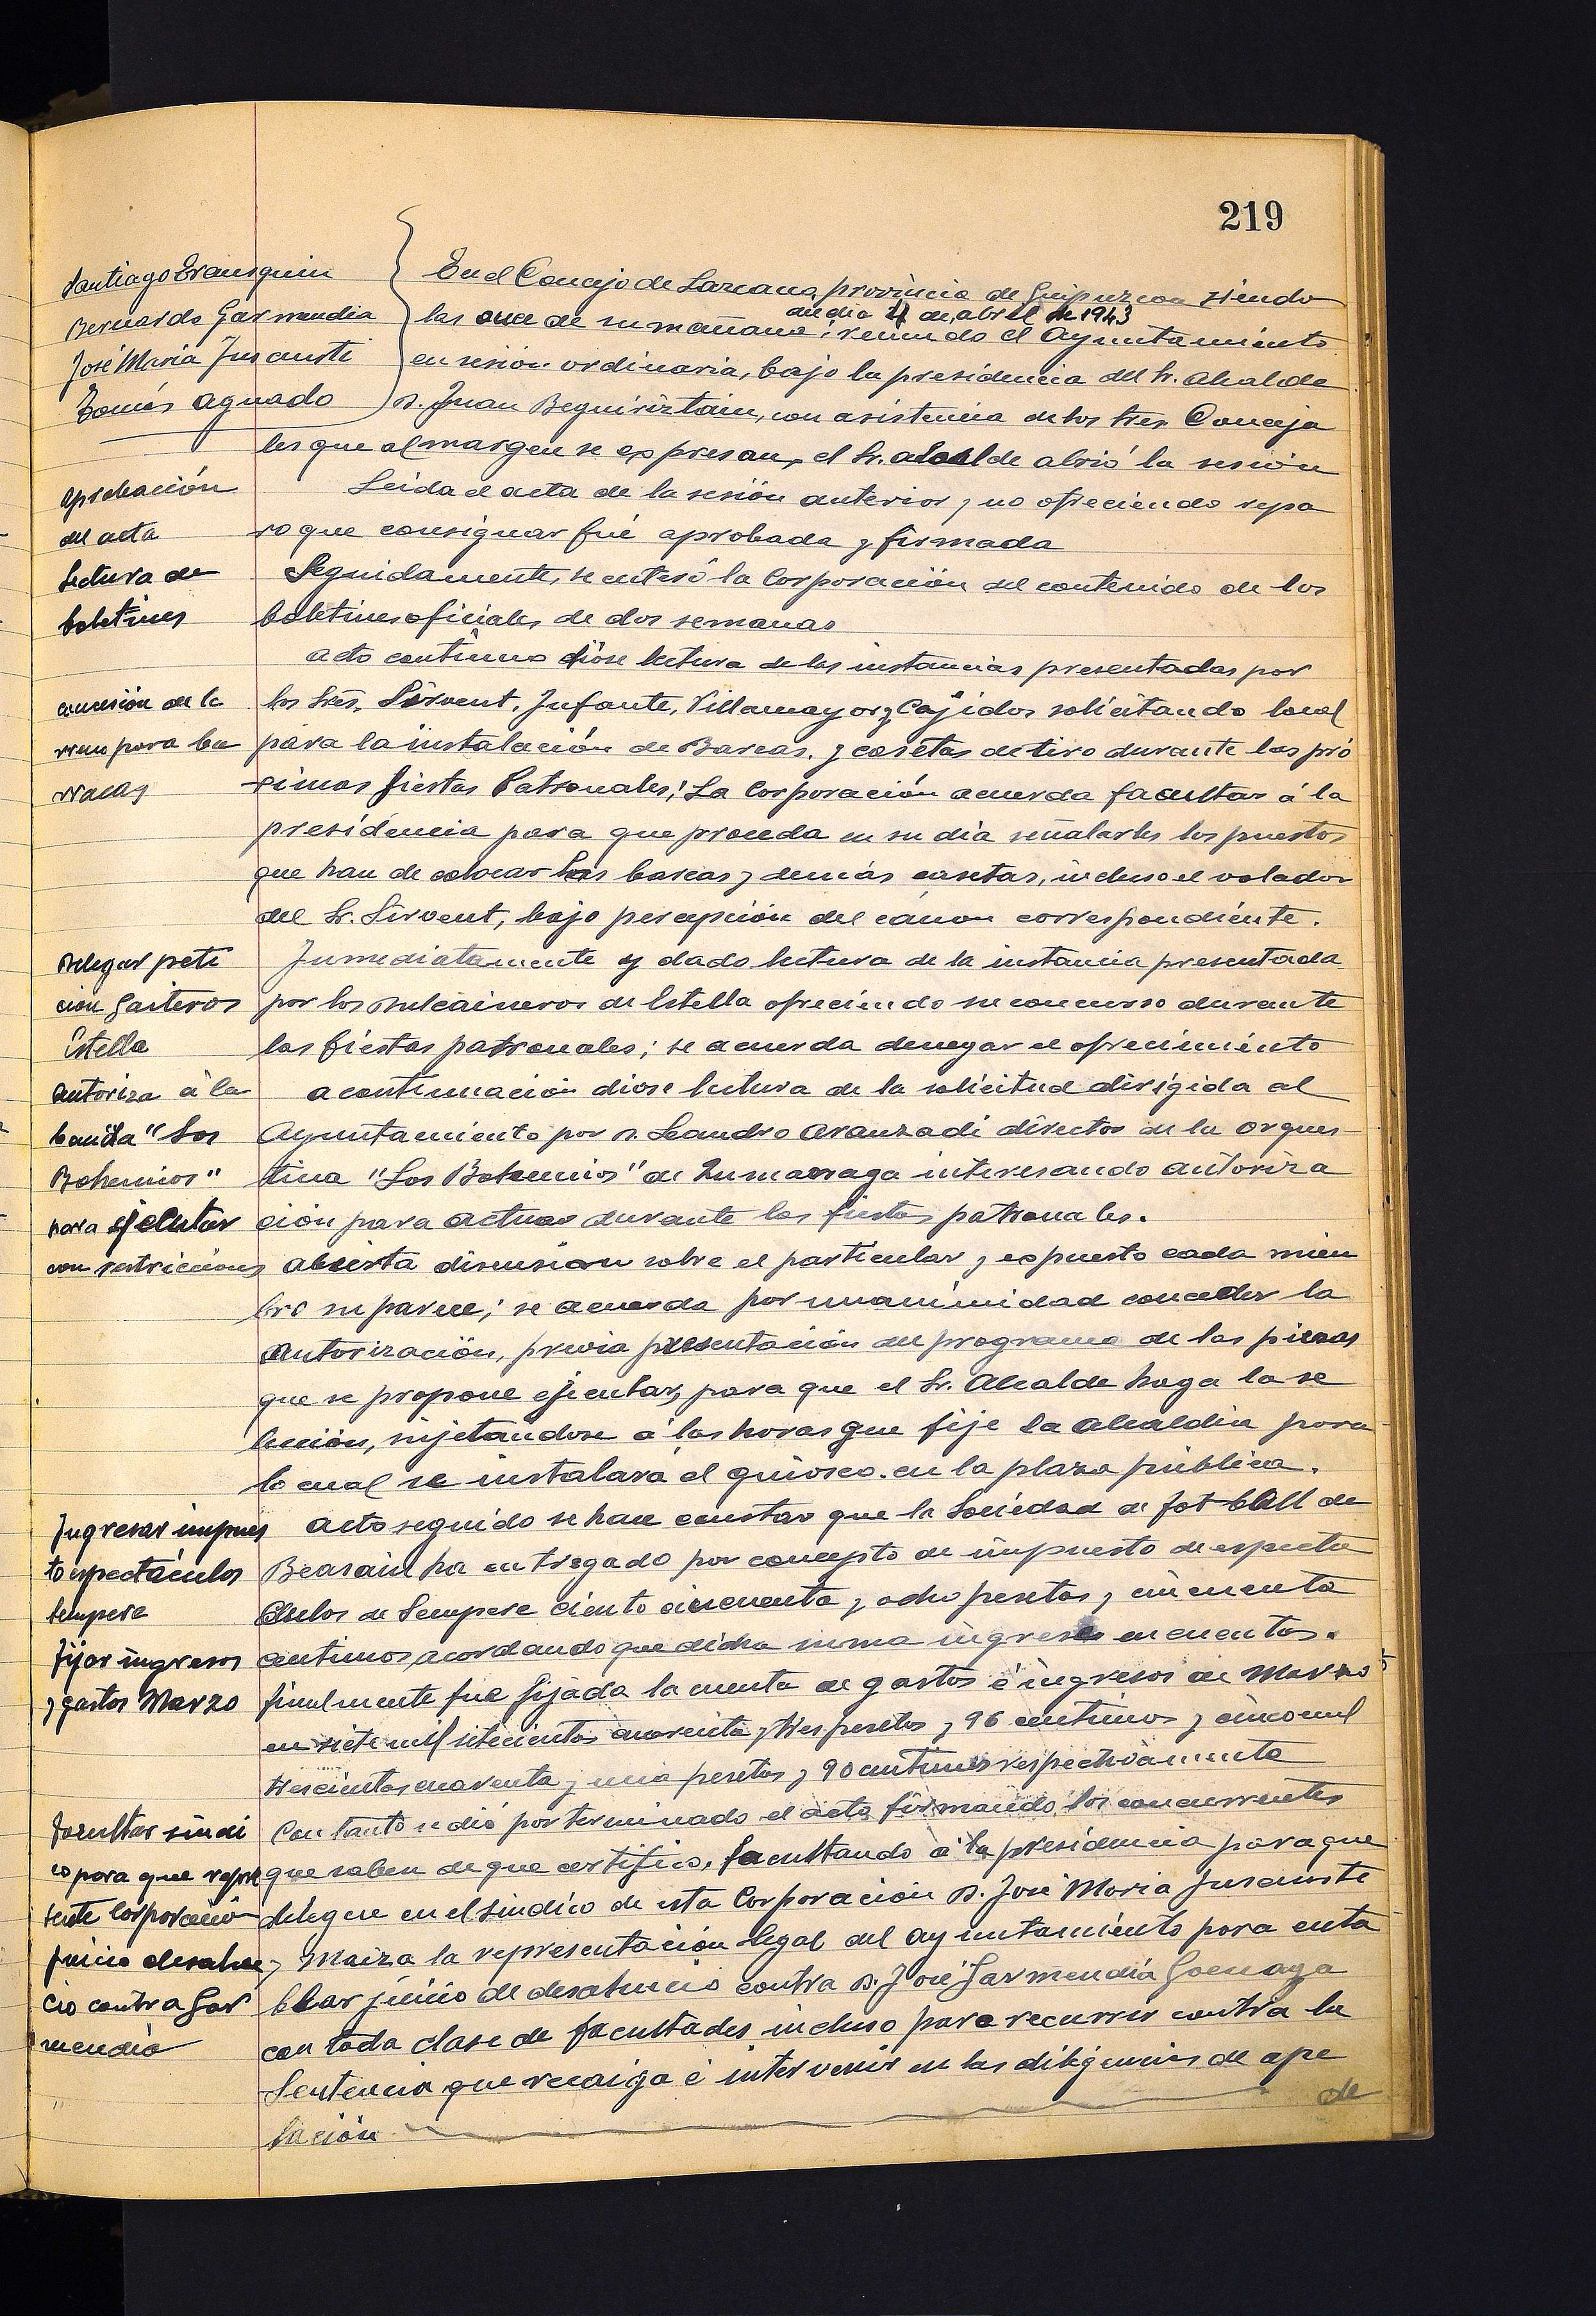 219
Santiago Erausquin
Bernardo Garmendia
José Maria Insausti
Tomás Aguado
En el Concejo de Lazcano, provincia de Guipuzcoa siendo
del dia 4 de abril de 1943
las once de su mañana; reunido el Ayuntamiento
en sesión ordinaria, bajo la presidencia del Sr. Alcalde
D. Juan Beguiristain, con asistencia de los tres Conceja
les que al margen se expresan, el Sr. Alcalde abrió la sesión
aprobación
del acta
Leida el acta de la sesión anterior y no ofreciendo repa
ro que consignar fué aprobada y firmada
Lectura de
boletines
Seguidamente, se enteró la Corporación del contenido de los
boletines oficiales de dos semanas
concesión de te
rreno para ba
rracas
acto continuo dióse lectura de las instancias presentadas por
los Sres. Sirvent, Infante, Villamayor y Cajidos solicitando local
para la instalación de Barcas, y casetas de tiro durante las pró
ximas fiestas Patronales; La Corporación acuerda facultar á la
presidencia para que proceda en su dia señalarles los puestos
que han de colocar las barcas y demás casetas, incluso el volador
del Sr. Sirvent, bajo percepción del cánon correspondiente.
Delegar peti
cion Gaiteros
Estella
Inmediatamente y dado lectura de la instancia presentada
por los dulcaineros de Estella ofreciendo su concurso durante
las fiestas patronales; se acuerda denegar el ofrecimiento
autoriza á la
banda "Los
Bohemios"
para ejecutar
con restricciones
a continuación diose lectura de la solicitud dirigida al
Ayuntamiento por D. Leandro Aranzadi director de la orques-
tina "Los Bohemios" de Zumarraga interesando autoriza
ción para actuar durante las fiestas patronales.
abierta discusion sobre el particular y expuesto cada miem
bro su parecer; se acuerda por unanimidad conceder la
autorización, previa presentación del programa de las piezas
que se propone ejecutar, para que el Sr. Alcalde haga la se
lección, sujetandose á las horas que fije la alcaldia para
lo cual se instalará el quiosco en la plaza pública.
Ingresar impues
to espectáculos
Sempere
acto seguido se hace constar que la Sociedad de fot-ball de
Beasain ha entregado por concepto de impuesto de espectá
culos de Sempere ciento cincuenta y ocho pesetas y cincuenta
centimos, acordando que dicha suma ingrese en cuentas.
Fijar ingresos
y gastos Marzo
finalmente fue fijada la cuenta de gastos é ingresos de Marzo
en siete mil setecientas cuarenta y tres pesetas y 96 centimos y cinco mil
trescientas cuarenta y una pesetas y 90 centimos respectivamente
Facultar sindi
co para que repre
sente Corporación
juicio desahu
cio contra Gar
mendia
Con tanto se dió por terminado el acto firmando los concurrentes
que saben de que certifico. facultando á la presidencia para que
delegue en el sindico de esta Corporación D. José Maria Insausti
y Maiza la representación legal del Ayuntamiento para enta
blar juicio de desahucio contra D. José Garmendia Goenaga
con toda clase de facultades incluso para recurrir contra la
Sentencia que recaiga é intervenir en las diligencias de ape
lación
de